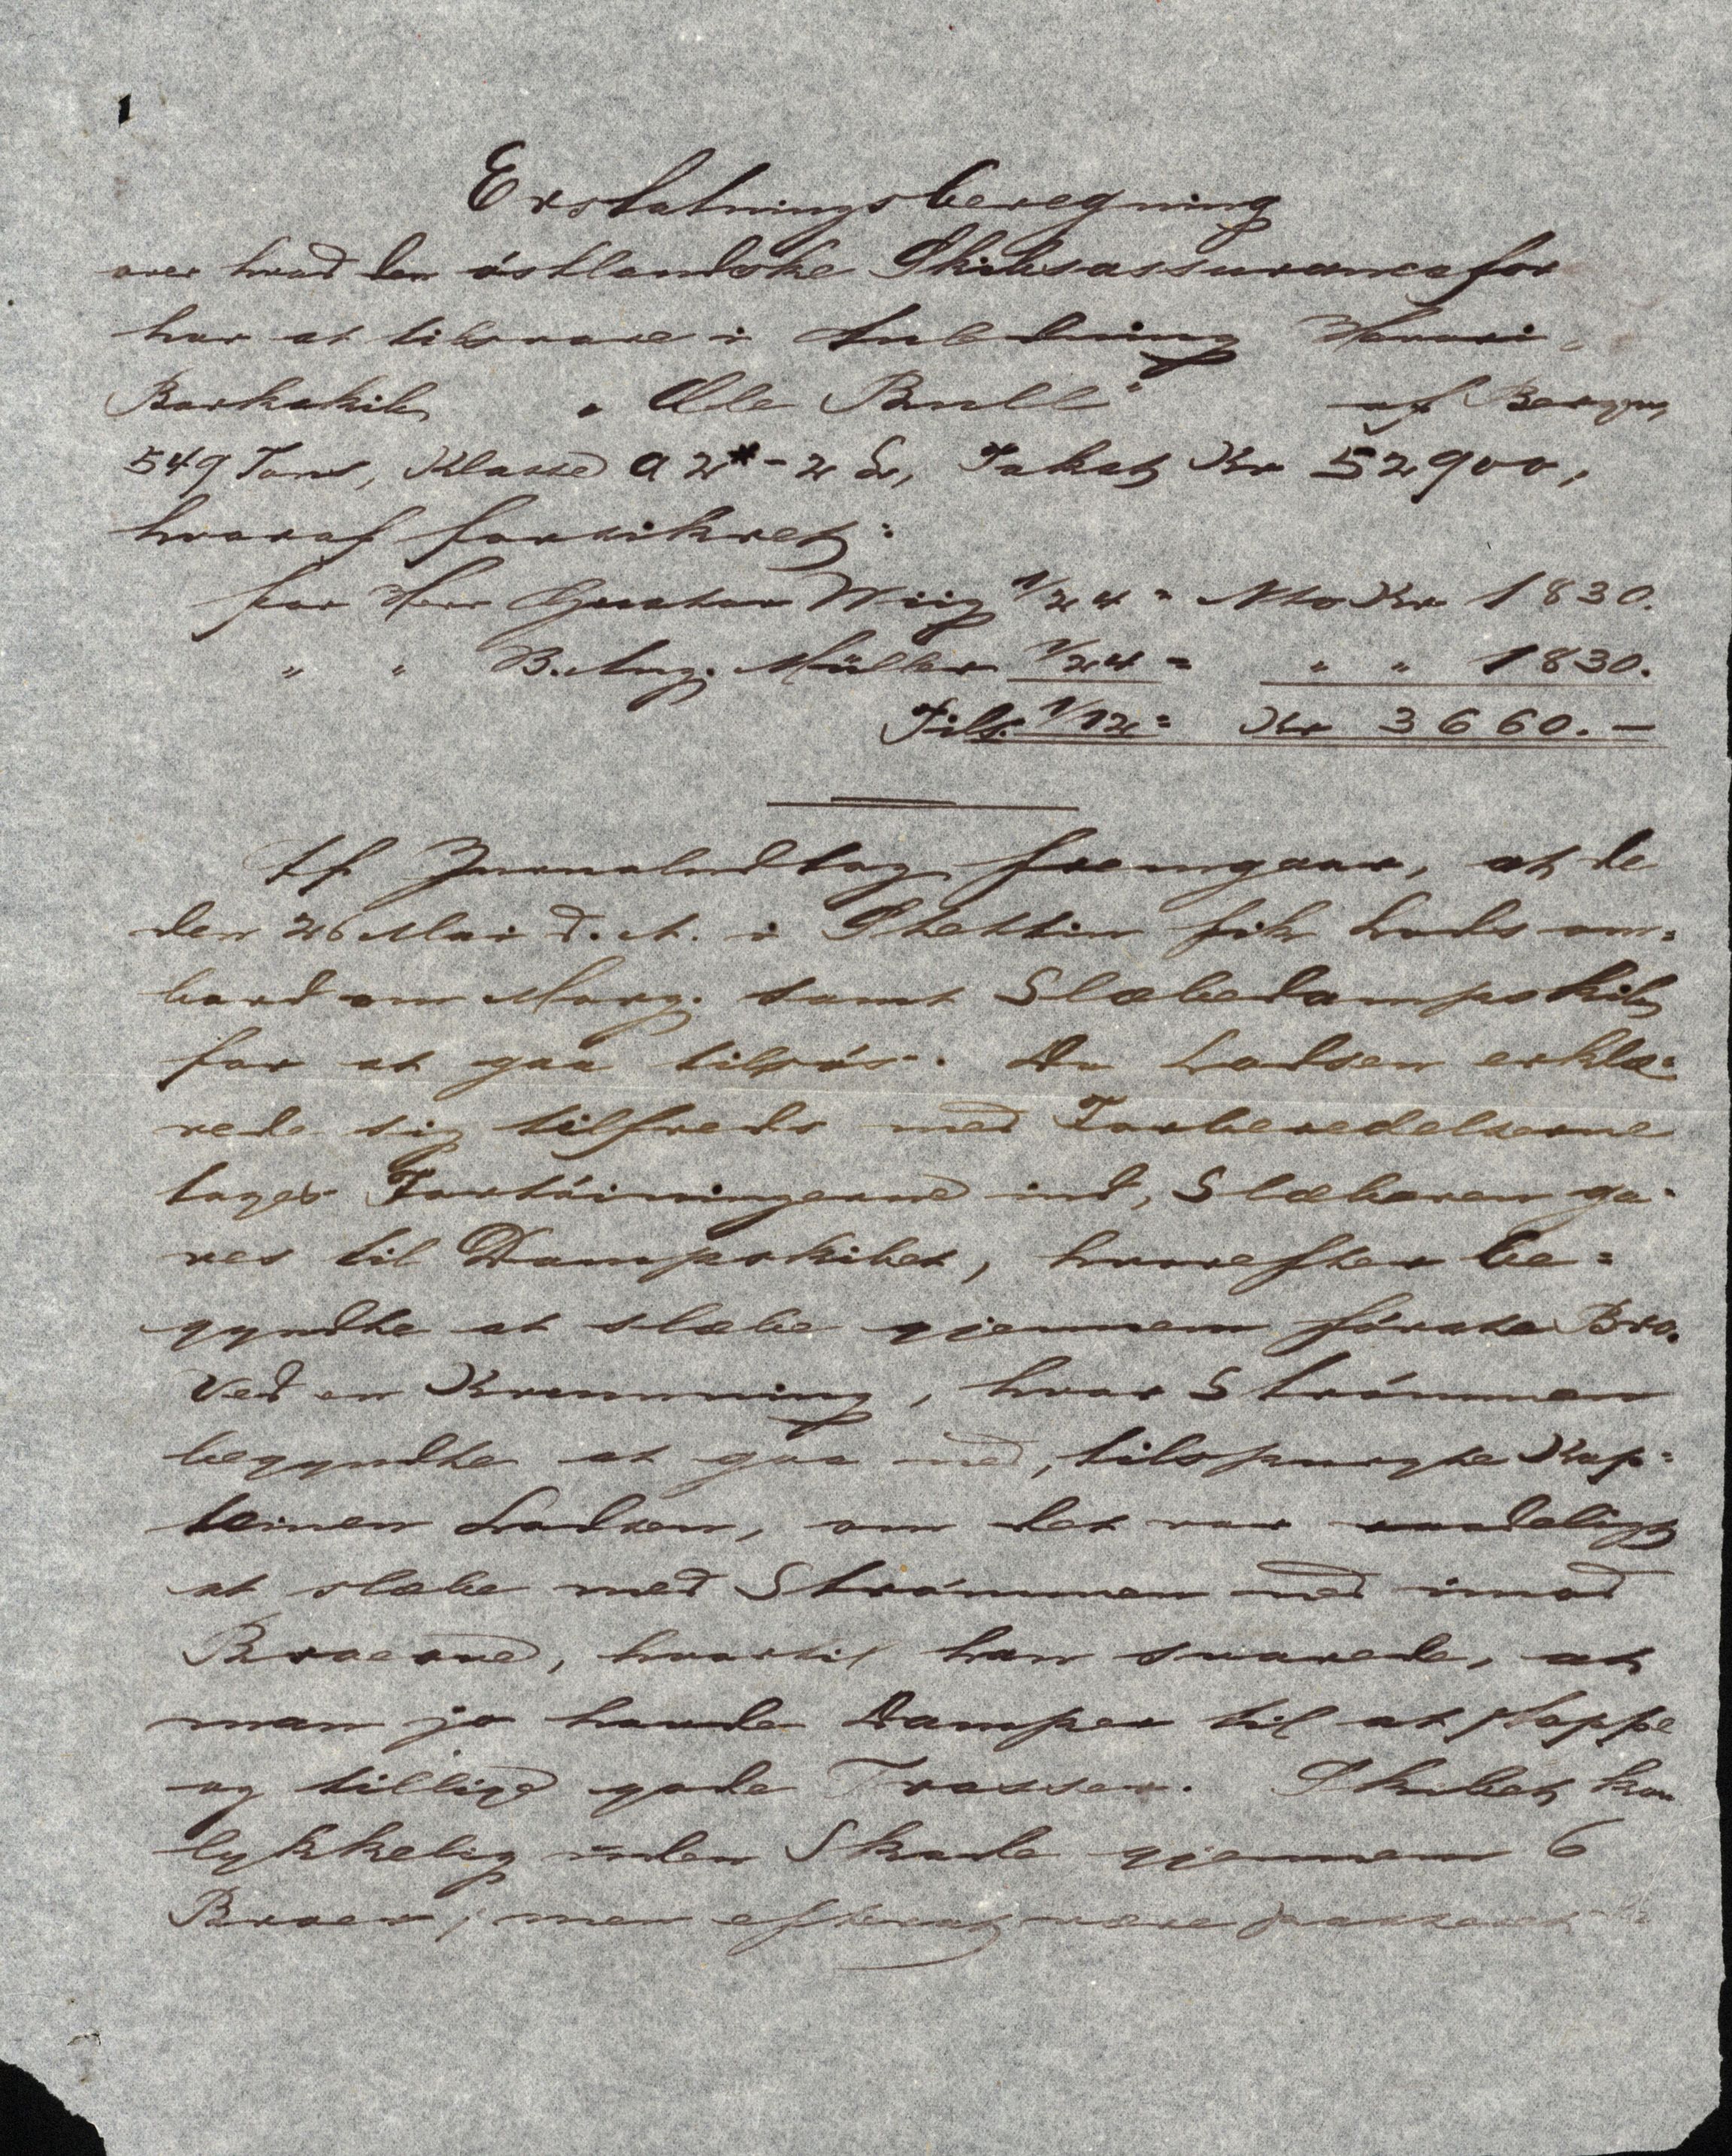 Erstatningsberegning
over hvad den östlandske Skibsassurancefor
har at tilsvare i Anledning Havari
Barkskib "Ole Bull" af Bergen
549 Tons, Klasse A 2* - 2 Takst Kr 52900,
hvoraf forsikret:
for Herr Gustav Wiig 1/24 = Nto Kr 1830.
" " B. Aug. Müller 1/24 = " " 1830.
Tils. 1/12 = Kr 3660. -
Af Journaludtog fremgaar, at de
den 26 Mai d. A. i Stettin fik Lods om=
bord om Morg. samt Slæbedampskib
for at gaa tilsös. Da Lodsen erklæ=
rede sig tilfreds med Forberedelserne
toges Fortöiningerne ind, Slæberen ga=
ves til Dampskibet, hvorefter be=
gyndte at slæbe gjennem förste Bro.
Ved en Krumning, hvor Strömmen
begyndte at gaa ned, tilspurgte Kap=
teinen Lodsen, om det var raadeligt
at slæbe med Strömmen ned imod
Broerne, hvortil han svarede, at
man jo havde Damper til at stoppe
og tillige gode Trosser. Skibet kom
lykkelig uden Skade gjennem 6
Broer, men efterat være passeret